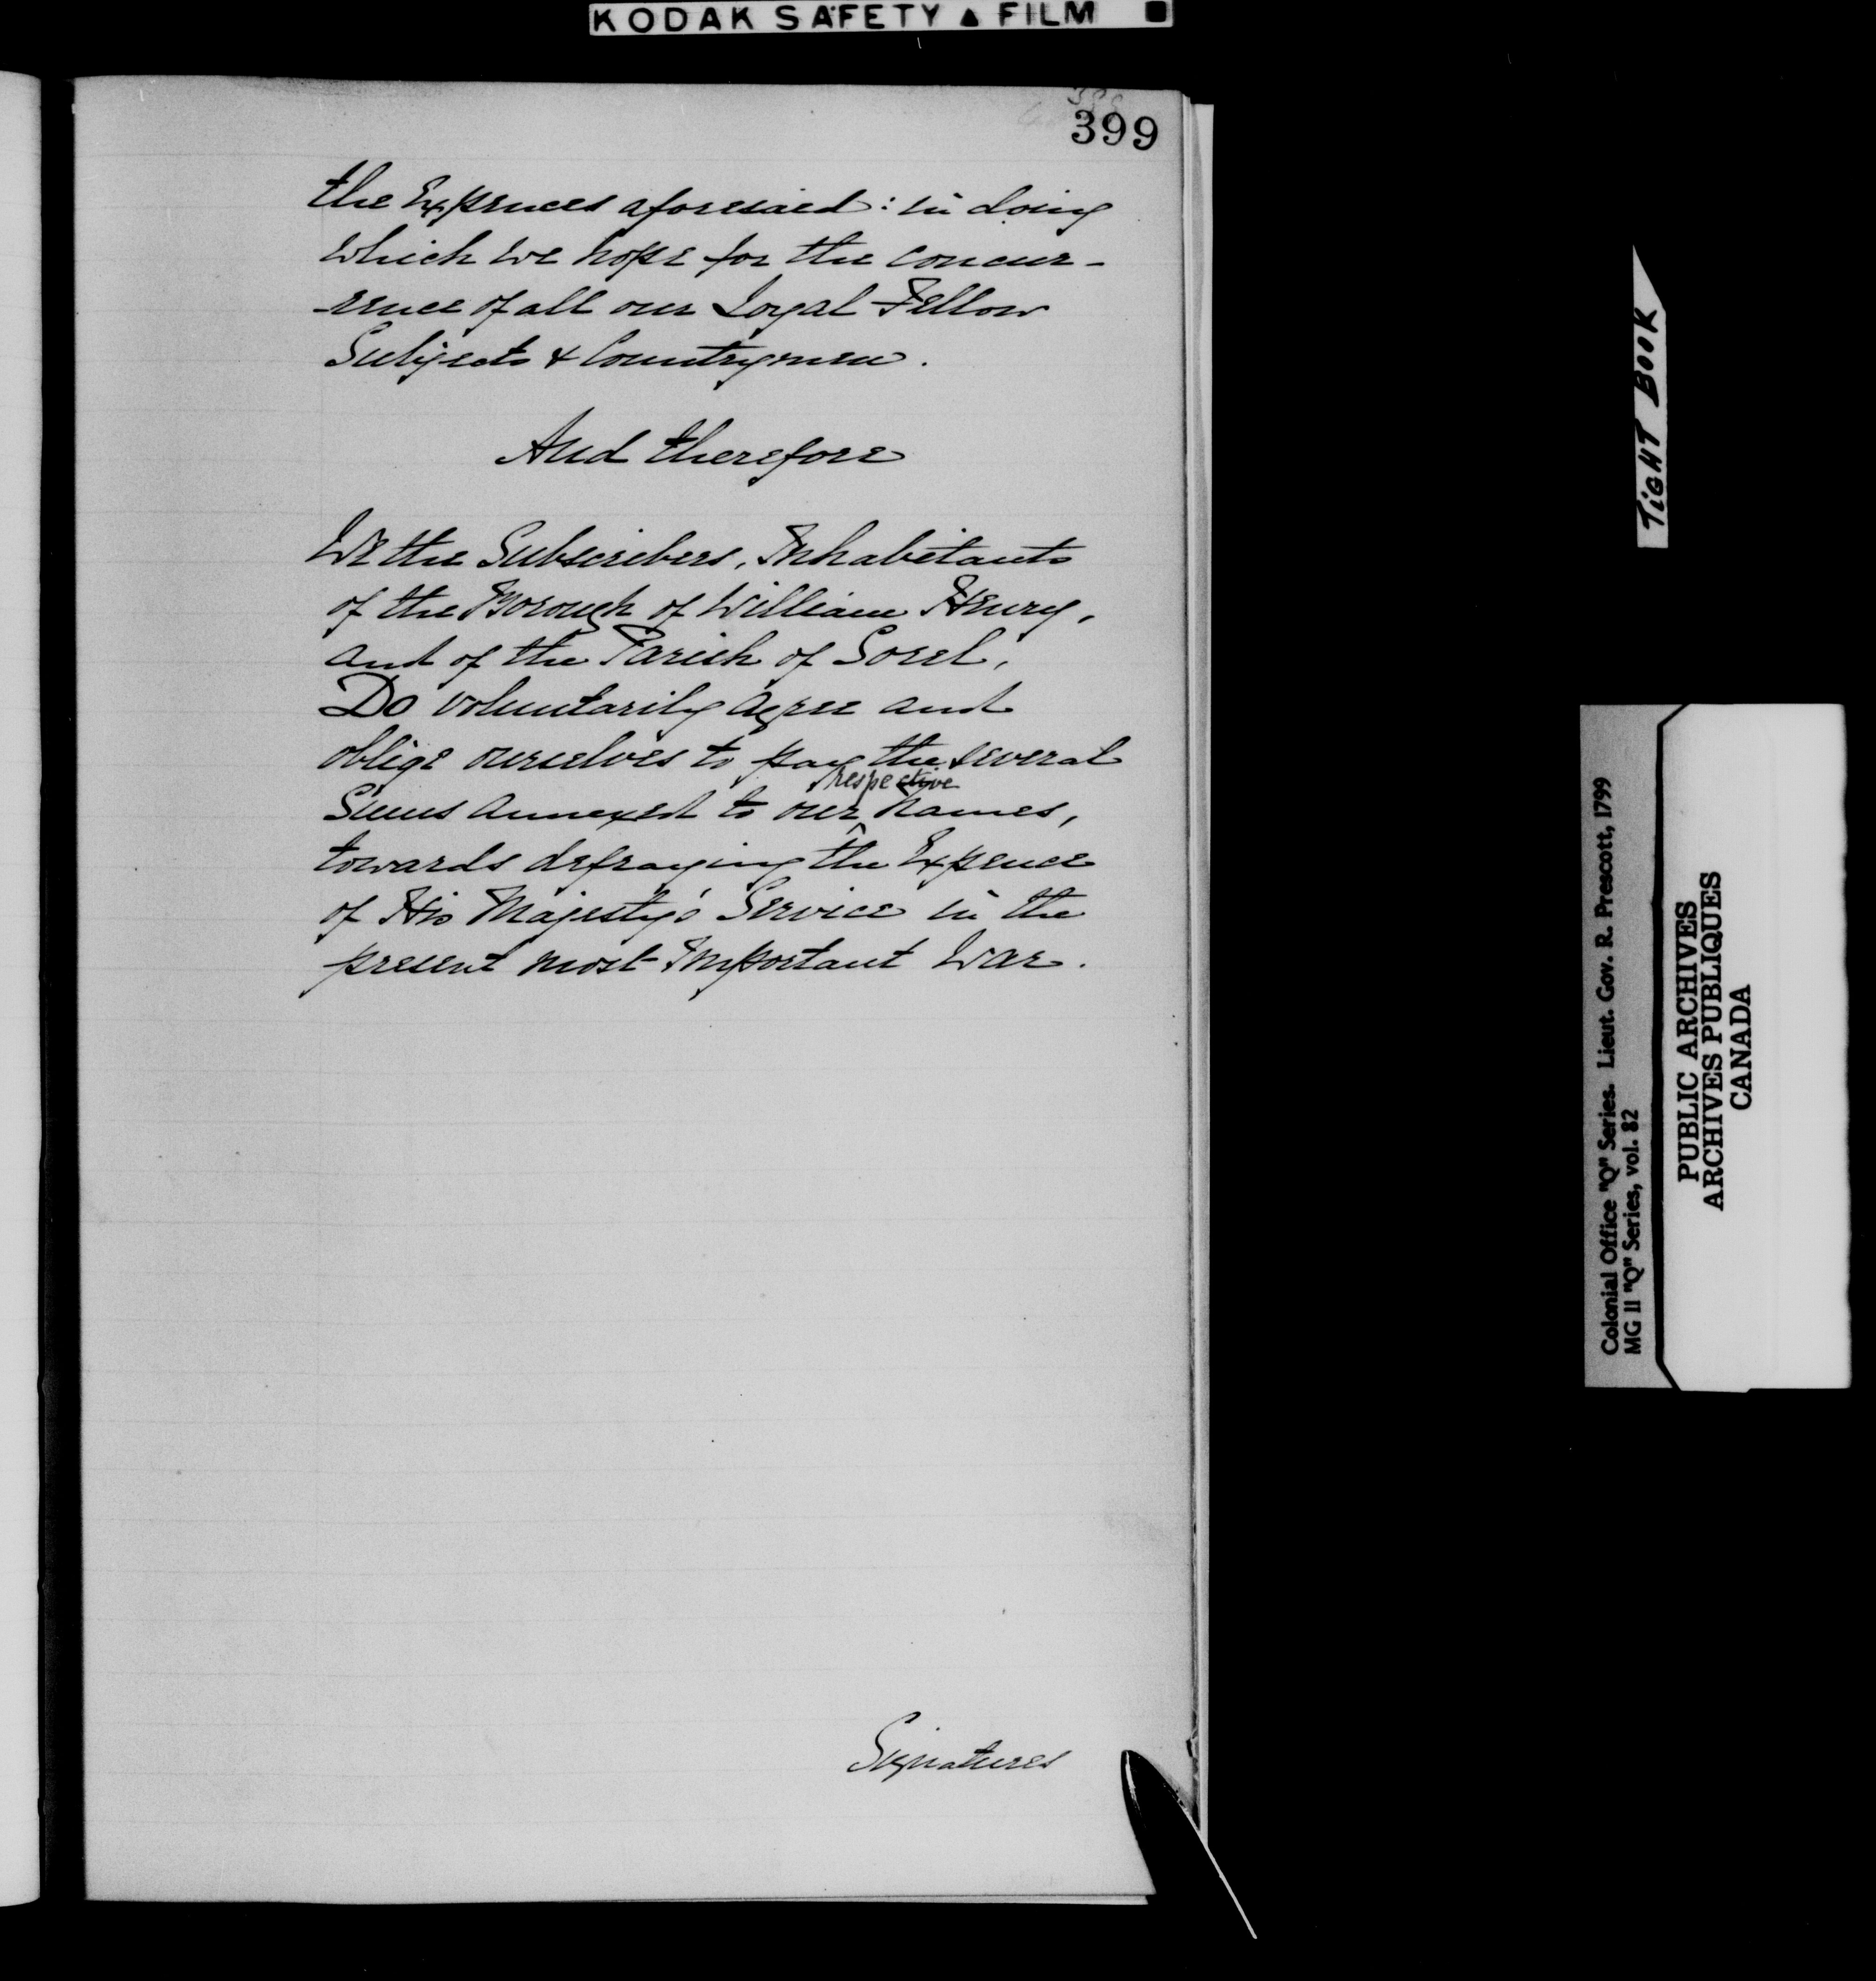 KODAK SAFETY ▲ FILM ■
399
the Expences aforesaid: in doing
which we hope for the concur-
-rence of all our Loyal Fellow
Subjects & Countrymen.
And therefore
We the Subscribers, Inhabitants
of the Borough of William Henry,
and of the Parish of Sorel,
Do voluntarily agree and
oblige ourselves to pay the several
respective
Sums annexed to our ^ names,
towards defraying the Expence
of His Majesty's Service in the
present most Important War.
Signatures
TIGHT BOOK
Colonial Office "Q" Series. Lieut. Gov. R. Prescott, 1799
MG 11 "Q" Series, vol. 82
PUBLIC ARCHIVES
ARCHIVES PUBLIQUES
CANADA